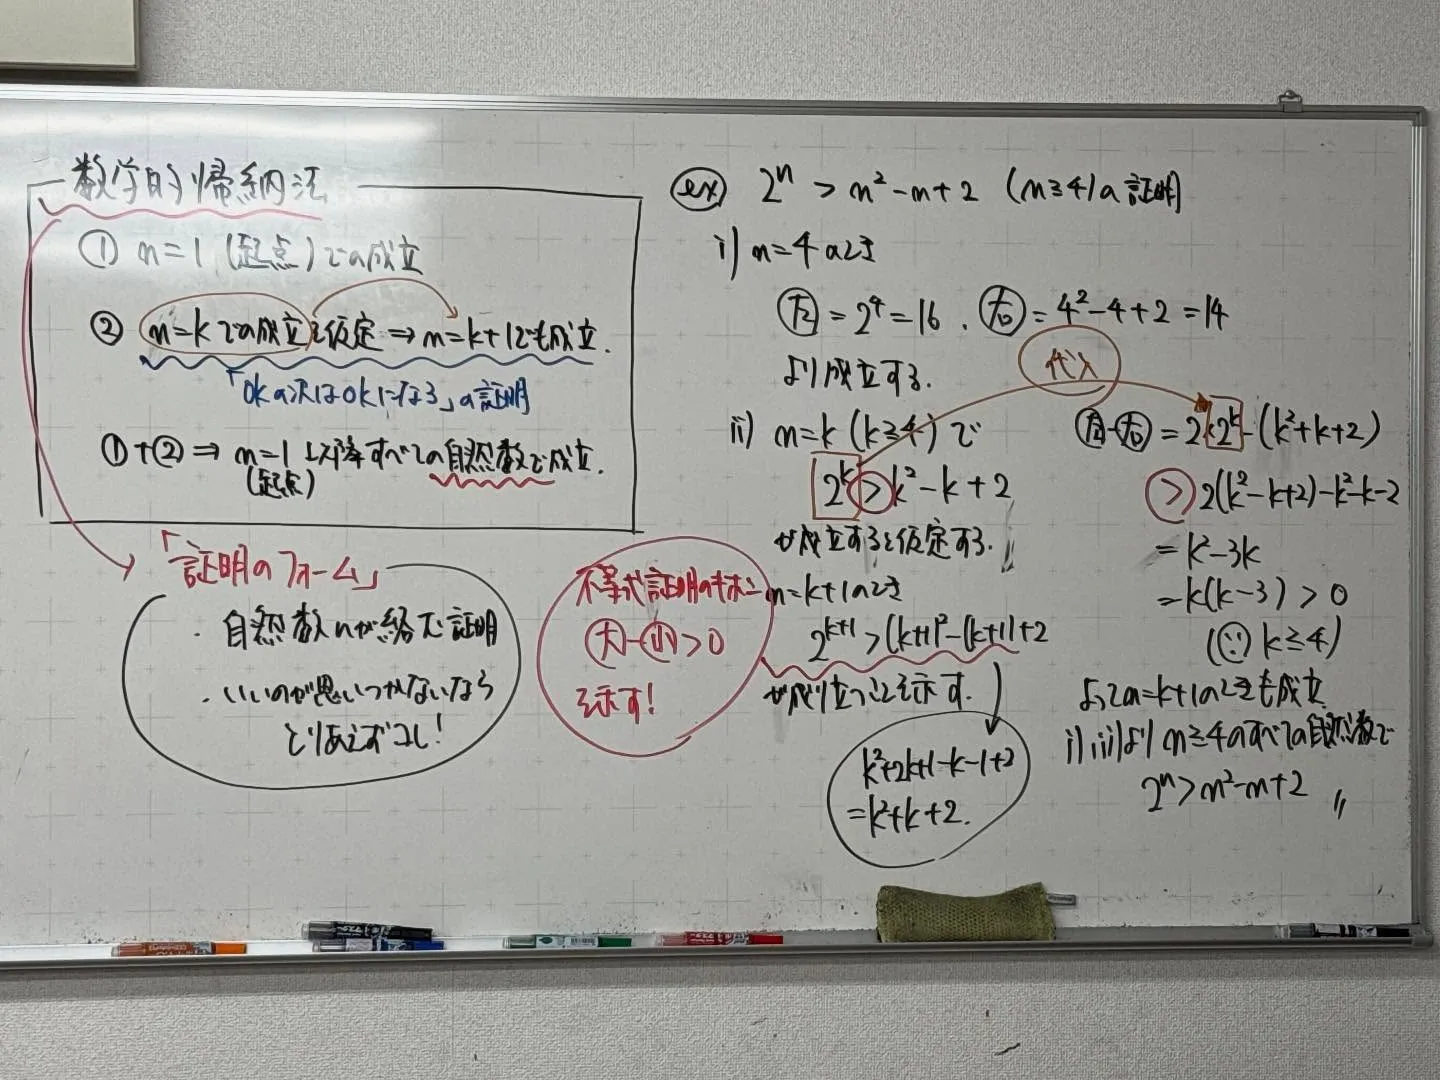 数学的帰納法
① n=1 (起点)での成立
② n=kでの成立を仮定 ⇒ n=k+1でも成立.
「okの次はokになる」の証明
①+② ⇒ n=1 以降すべての自然数で成立.
(起点)
「証明のフォーム」
・自然数nが絡む証明
・いいのが思いつかないなら
とりあえずコレ!
不等式証明のキホン
大-小>0
を示す!
ex 2ⁿ > n²-n+2 (n≧4)の証明
i) n=4のとき
左=2⁴=16, 右=4²-4+2=14
より成立する.
ii) n=k (k≧4)で
2ᵏ>k²-k+2
が成立すると仮定する.
n=k+1のとき
2ᵏ⁺¹>(k+1)²-(k+1)+2
が成り立つことを示す.
k²+2k+1-k-1+2
=k²+k+2.
代入
左-右=2×2ᵏ-(k²+k+2)
>2(k²-k+2)-k²-k-2
=k²-3k
=k(k-3)>0
(∵ k≧4)
よってn=k+1のときも成立
i) ii)より n≧4のすべての自然数で
2ⁿ>n²-n+2 〃